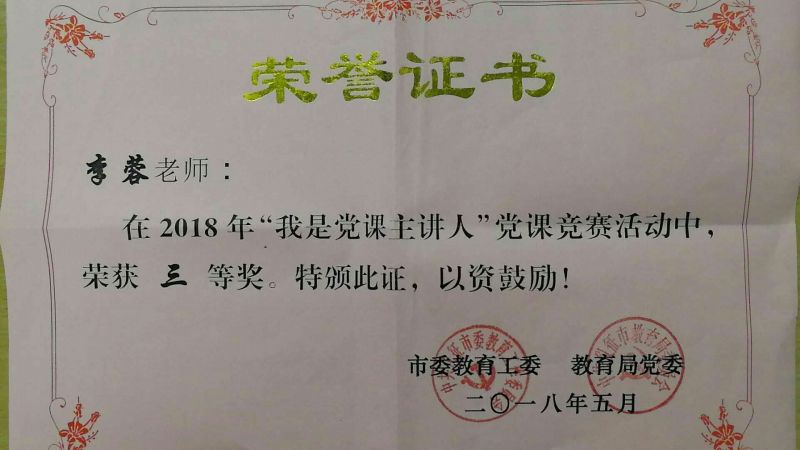 荣誉证书
李蓉老师：
在2018年“我是党课主讲人”党课竞赛活动中，
荣获 三 等奖。特颁此证，以资鼓励！
市委教育工委 教育局党委
二〇一八年五月